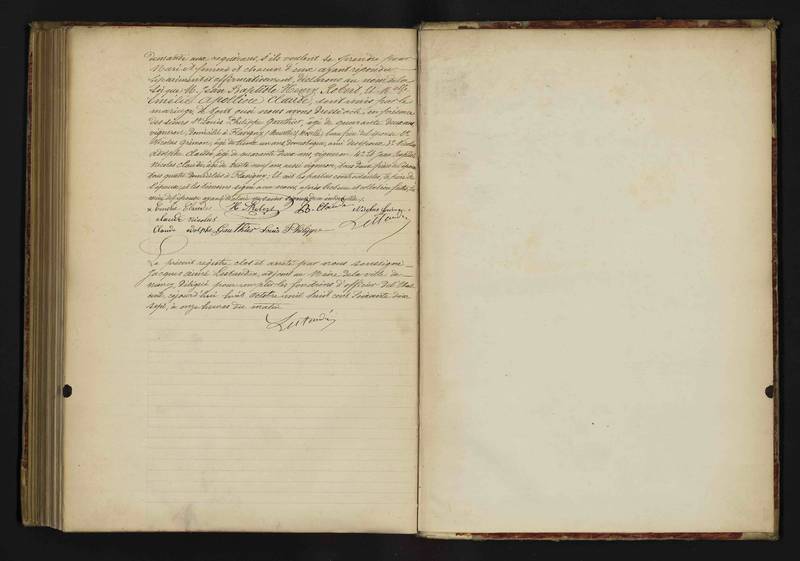 demandé aux requérants, s'ils veulent se prendre pour
Mari et femme et chacun d'eux ayant répondu
séparément et affirmativement, déclarons au nom de la
loi que M. Jean Baptiste Henry Robert, et Mlle
Emélie Apolline Claude, sont unis par le
mariage, de tout quoi nous avons dressé acte, en présence
des sieurs Louis Philippe Gauthier, âgé de quarante deux ans
vigneron, domicilié à Flavigny (Meurthe et Moselle) beau frère de l'épouse 2°
Nicolas âgé de trente un ans domestique, ami des époux, 3° Nicolas
Adolphe Claude, âgé de quarante deux ans, vigneron 4° et Jean Baptiste
Nicolas Claude, âgé de trente neuf ans aussi vigneron, tous deux frères de l'épouse
tous quatre domiciliés à Flavigny; Et ont les parties contractantes, le père de
l'époux, et les témoins signé avec nous, après lecture et collation faites, la
mère de l'épouse ayant déclaré
Emélie Claude H. Robert Claude Nicolas
claude nicolas Lestaudin
Claude adolphe Gauthier Louis Philippe
Le présent registre clos et arrêté par nous soussigné
Jacques aimé Lestaudin, adjoint au Maire de la ville de
nancy, délégué pour remplir les fonctions d'officier de l'Etat
civil, cejourd'hui huit octobre mil huit cent soixante dix
sept, à onze heures du matin
Lestaudin